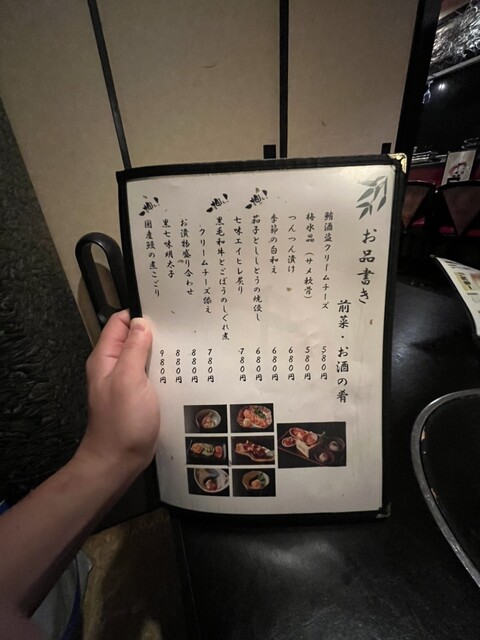 お品書き
前菜・お酒の肴
鮪酒盗クリームチーズ 580円
梅水晶（サメ軟骨） 580円
つんつん漬け 680円
季節の白和え 680円
茄子とししとうの焼浸し 680円
七味エイヒレ炙り 780円
黒毛和牛とごぼうのしぐれ煮
クリームチーズ添え 780円
お漬物盛り合わせ 880円
黒七味明太子 880円
国産鰻の煮こごり 980円